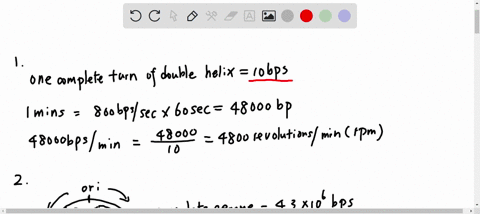 1.
one complete turn of double helix = 10bps
1 mins = 800bps/sec × 60sec = 48000 bp
48000bps/min = 48000/10 = 4800 revolutions/min (rpm)
2.
ori
= 4.3 × 10⁶ bps